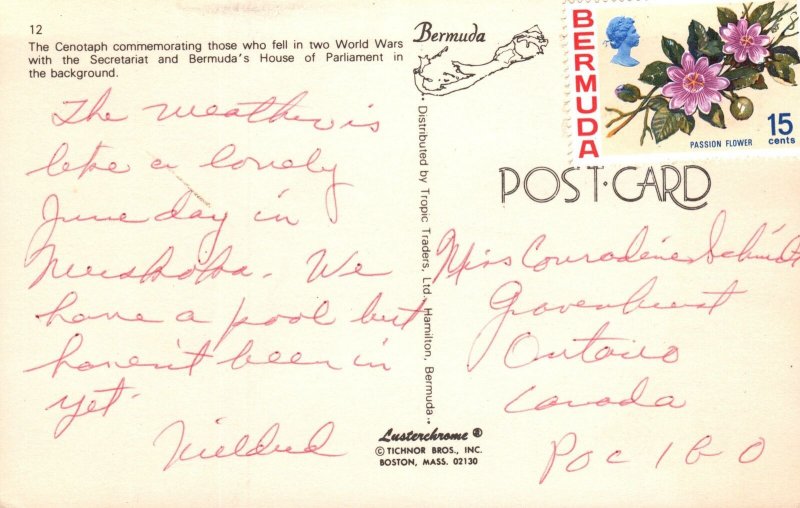 12
The Cenotaph commemorating those who fell in two World Wars
with the Secretariat and Bermuda's House of Parliament in
the background.
The weather is
like a lovely
June day in
Muskoka. We
have a pool but
haven't been in
yet.
Mildred
Bermuda
Distributed by Tropic Traders, Ltd., Hamilton, Bermuda.
Lusterchrome ®
© TICHNOR BROS., INC.
BOSTON, MASS. 02130
BERMUDA
PASSION FLOWER
15
cents
POST·CARD
Miss Schmidt
Gravenhurst
Ontario
Canada
POC 1G0